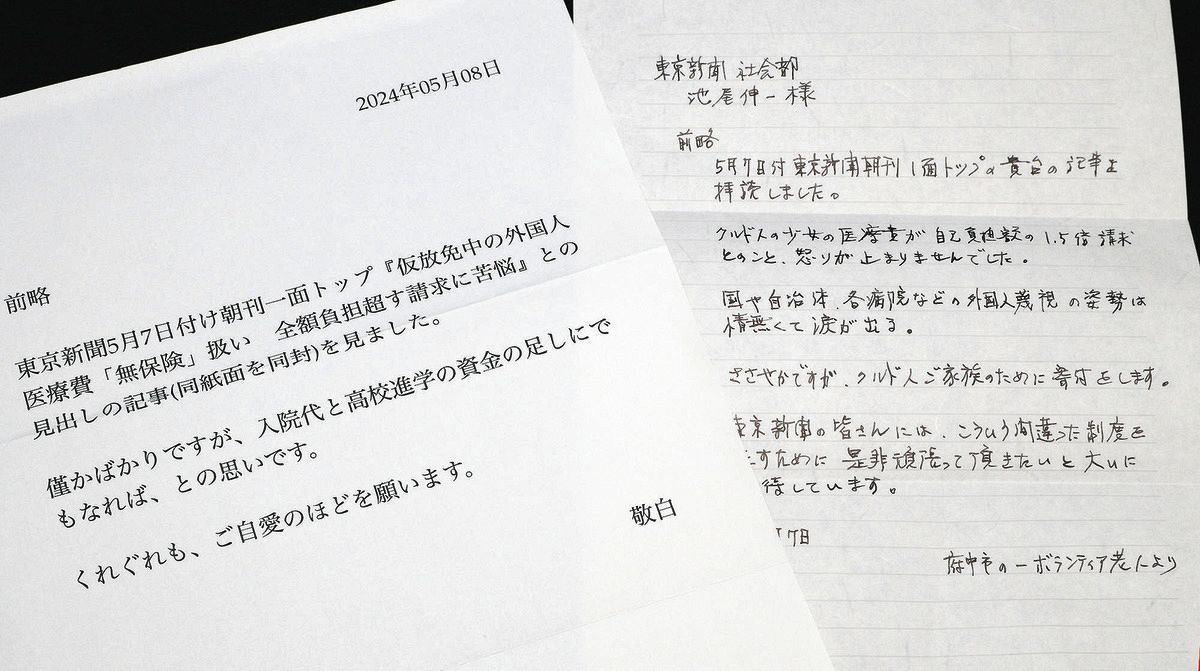 2024年05月08日
前略
東京新聞5月7日付け朝刊一面トップ『仮放免中の外国人
医療費「無保険」扱い　全額負担超す請求に苦悩』との
見出しの記事(同紙面を同封)を見ました。
僅かばかりですが、入院代と高校進学の資金の足しにで
もなれば、との思いです。
くれぐれも、ご自愛のほどを願います。
敬白
東京新聞 社会部
池尾伸一様
前略
5月7日付東京新聞朝刊1面トップの貴台の記事を
拝読しました。
クルド人の少女の医療費が自己負担額の1.5倍請求
とのこと、怒りが止まりませんでした。
国や自治体、各病院などの外国人蔑視の姿勢は
情無くて涙が出る。
ささやかですが、クルド人ご家族のために寄付をします。
東京新聞の皆さんには、こういう間違った制度を
すために是非頑張って頂きたいと大いに
待しています。
7日
府中市の一ボランティア老人より